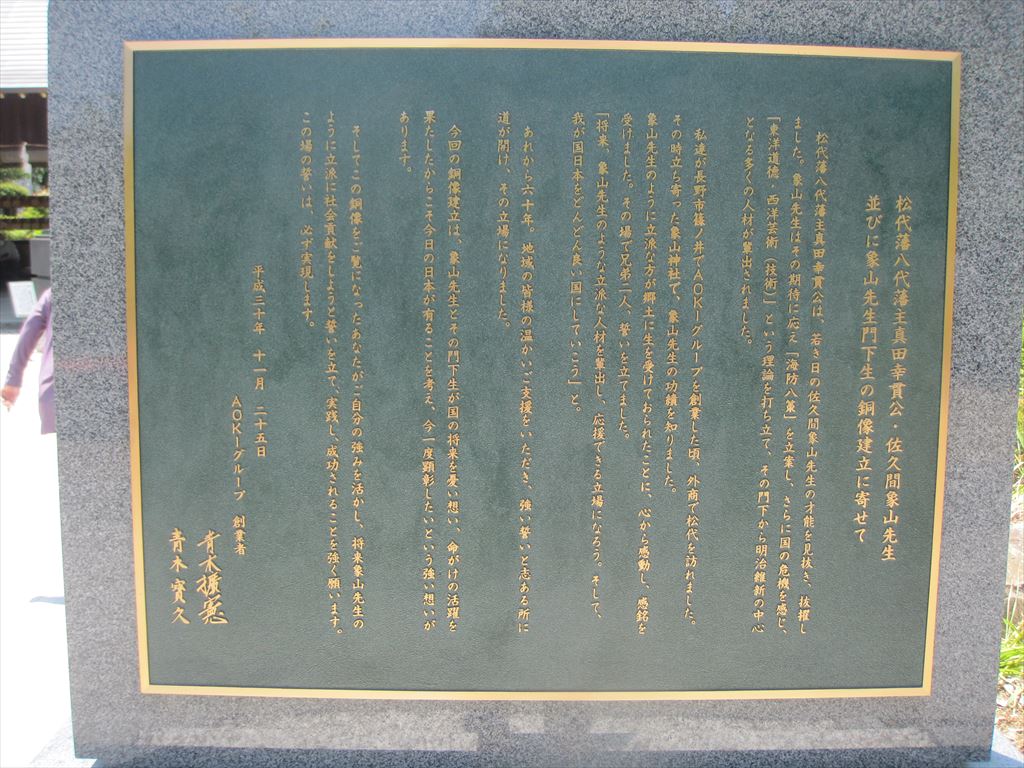 松代藩八代藩主真田幸貫公・佐久間象山先生
並びに象山先生門下生の銅像建立に寄せて
松代藩八代藩主真田幸貫公は、若き日の佐久間象山先生の才能を見抜き、抜擢し
ました。象山先生はその期待に応え「海防八策」を立案し、さらに国の危機を感じ、
「東洋道徳・西洋芸術（技術）」という理論を打ち立て、その門下から明治維新の中心
となる多くの人材が輩出されました。
私達が長野市篠ノ井でAOKIグループを創業した頃、外商で松代を訪れました。
その時立ち寄った象山神社で、象山先生の功績を知りました。
象山先生のように立派な方が郷土に生を受けておられたことに、心から感動し、感銘を
受けました。その場で兄弟二人、誓いを立てました。
「将来、象山先生のような立派な人材を輩出し、応援できる立場になろう。そして、
我が国日本をどんどん良い国にしていこう」と。
あれから六十年。地域の皆様の温かいご支援をいただき、強い誓いと志ある所に
道が開け、その立場になりました。
今回の銅像建立は、象山先生とその門下生が国の将来を憂い想い、命がけの活躍を
果たしたからこそ今日の日本が有ることを考え、今一度顕彰したいという強い想いが
あります。
そしてこの銅像をご覧になったあなたがご自分の強みを活かし、将来象山先生の
ように立派に社会貢献をしようと誓いを立て、実践し、成功されることを強く願います。
この場の誓いは、必ず実現します。
平成三十年 十一月 二十五日
AOKIグループ 創業者
青木擴憲
青木寶久